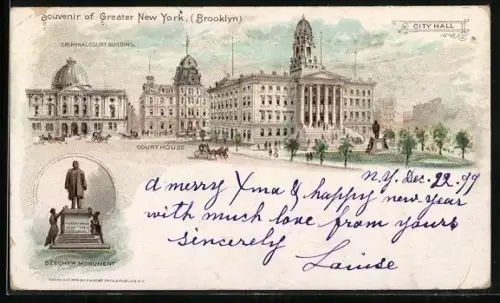 Souvenir of Greater New York, (Brooklyn)
CITY HALL
CRIMINAL COURT BUILDING.
COURT HOUSE
N.Y. Dec. 22. 99
a merry Xma & happy new year
with much love from yours
sincerely
Louise
BEECHER MONUMENT